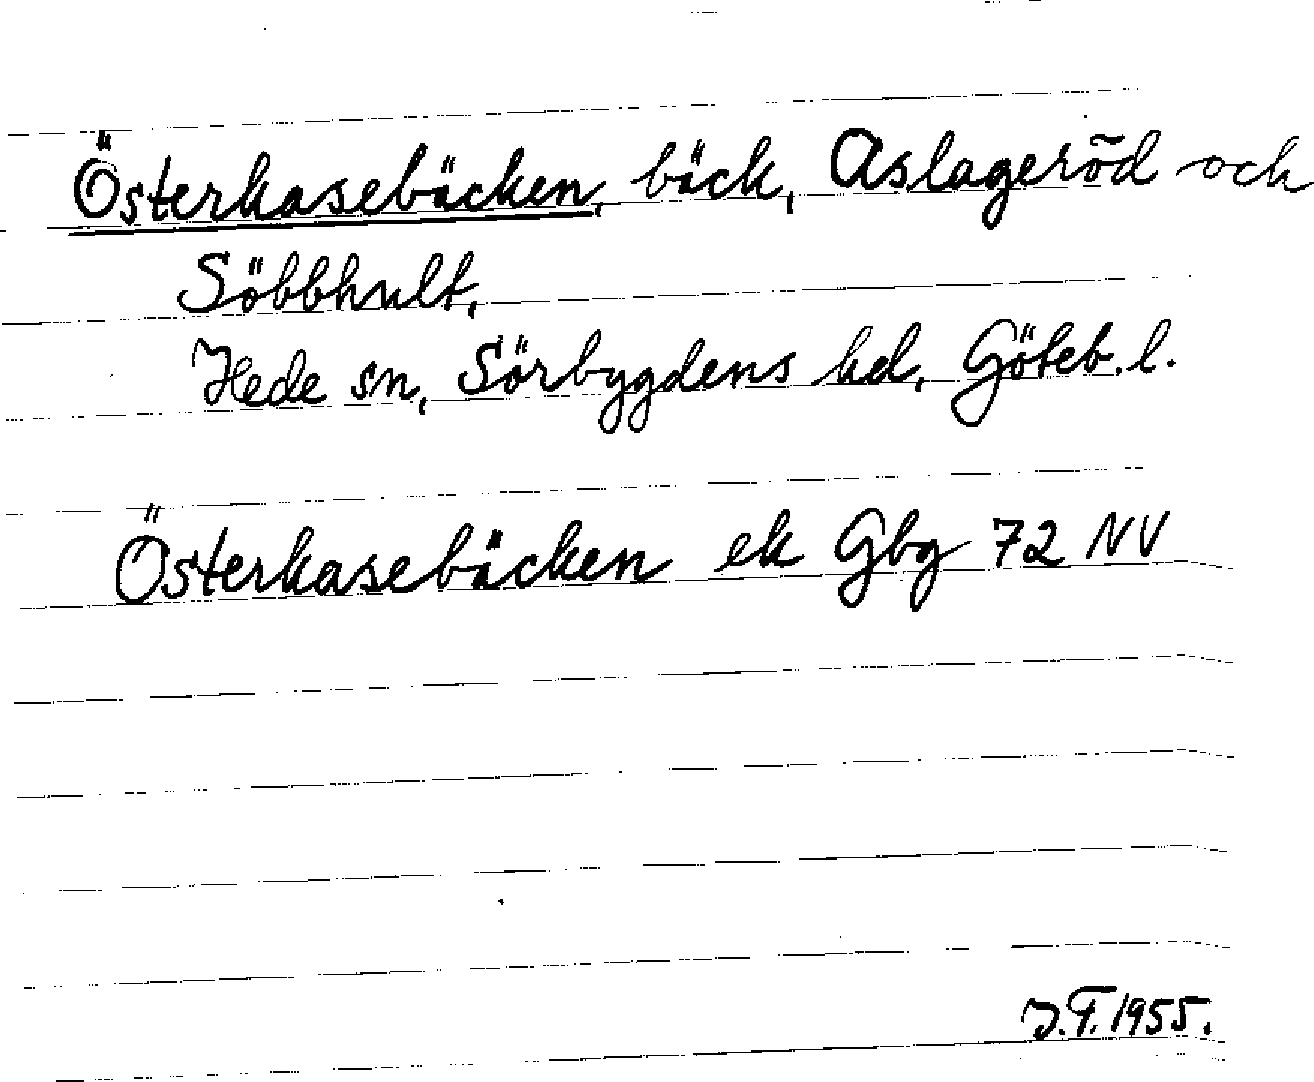 Österkasebäcken, bäck, Aslageröd och
Söbbhult,
Hede sn, Sörbygdens hd, Göteb. l.
Österkasebäcken ek Gbg 72 NV
J.F. 1955.